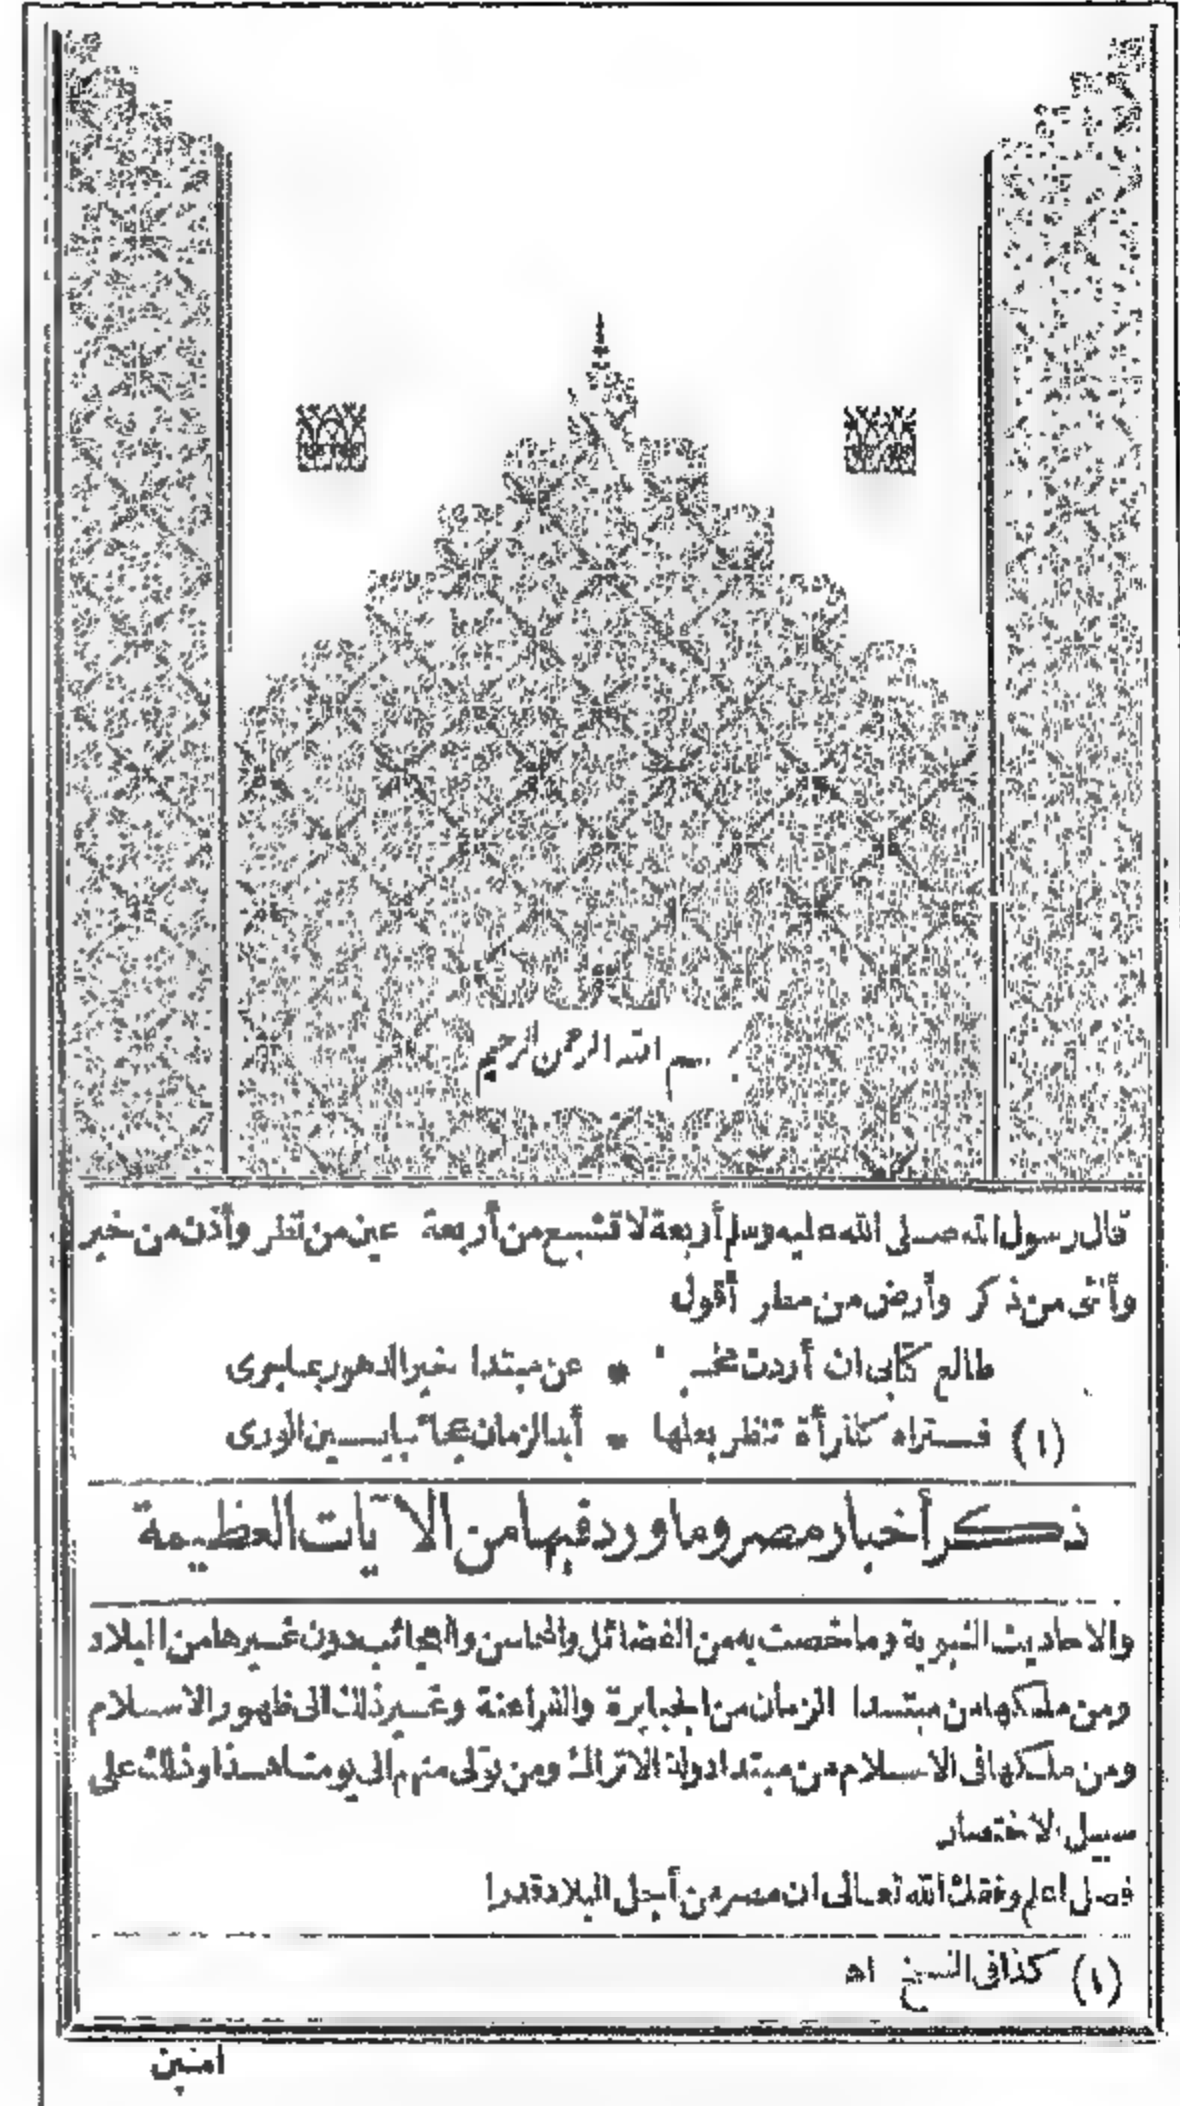 بسم الله الرحمن الرحيم
قال رسول الله صلى الله عليه وسلم أربعة لا تشبع من أربعة عين من نظر وأذن من خبر
وأنثى من ذكر وأرض من مطر أقول
طالع كتابى ان أردت * عن مبتدا خبر الدهور بما جرى
(١) فستراه كالمرأة تنظر بعلها * أبدا الزمان عجائب الورى
ذكر أخبار مصر وما ورد فيها من الآيات العظيمة
والاحاديث النبوية وما خصت به من الفضائل والمحاسن والعجائب دون غيرها من البلاد
ومن ملكها من مبتدا الزمان من الجبابرة والفراعنة وغير ذلك الى ظهور الاسلام
ومن ملكها فى الاسلام من مبتدا دولة الاتراك ومن تولى منهم الى يومنا هذا وذلك على
سبيل الاختصار
فصل اعلم وفقك الله تعالى ان مصر من أجل البلاد قدرا
(١) كذا فى النسخ اه
امنين